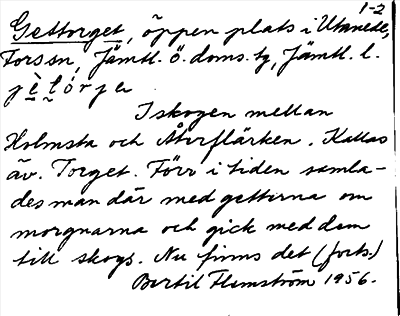 1-2
Gettorget, öppen plats i Utanede,
Fors sn, Jämtl. ö. doms. tg, Jämtl. l.
I skogen mellan
Holmsta och Återflärken. Kallas
äv. Torget. Förr i tiden samla-
des man där med getterna om
morgnarna och gick med dem
till skogs. Nu finns det (forts.)
Bertil Flemström 1956.